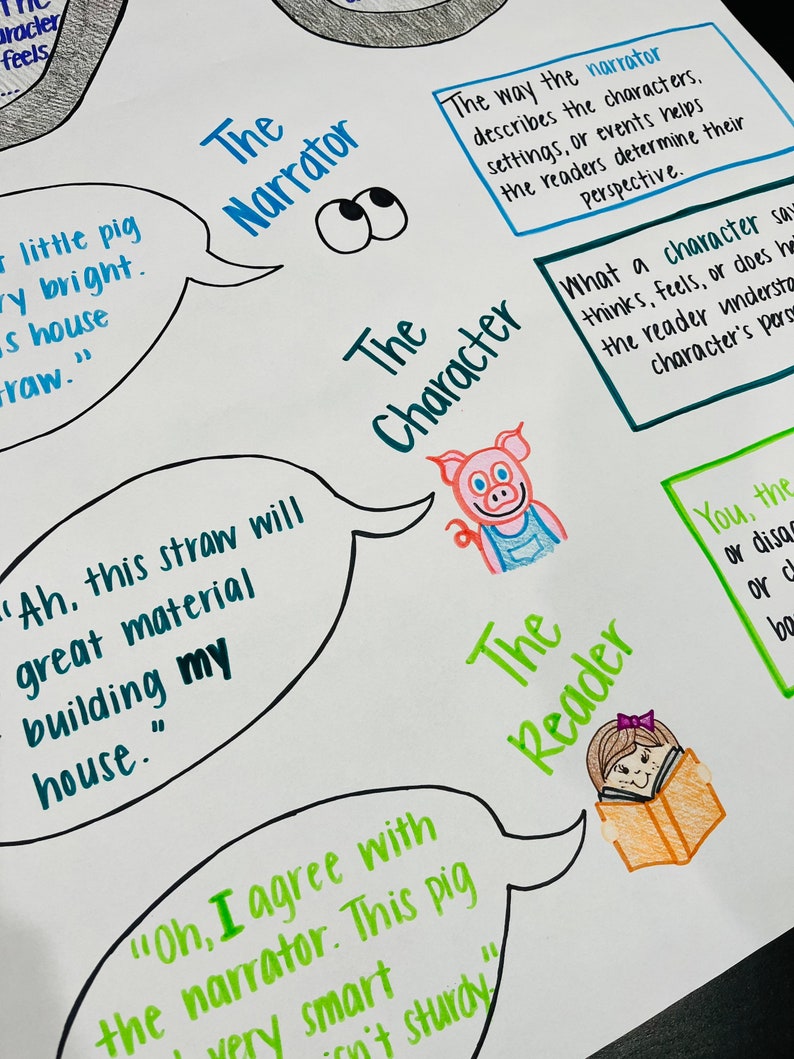 feels
...
The
Narrator
The way the narrator
describes the characters,
settings, or events helps
the readers determine their
perspective.
little pig
bright.
house
The
Character
What a character
thinks, feels, or does
the reader
character's
"Ah, this straw will
great material
building my
house."
The
Reader
You, the
or
or
"Oh, I agree with
the narrator. This pig
very smart
isn't sturdy."